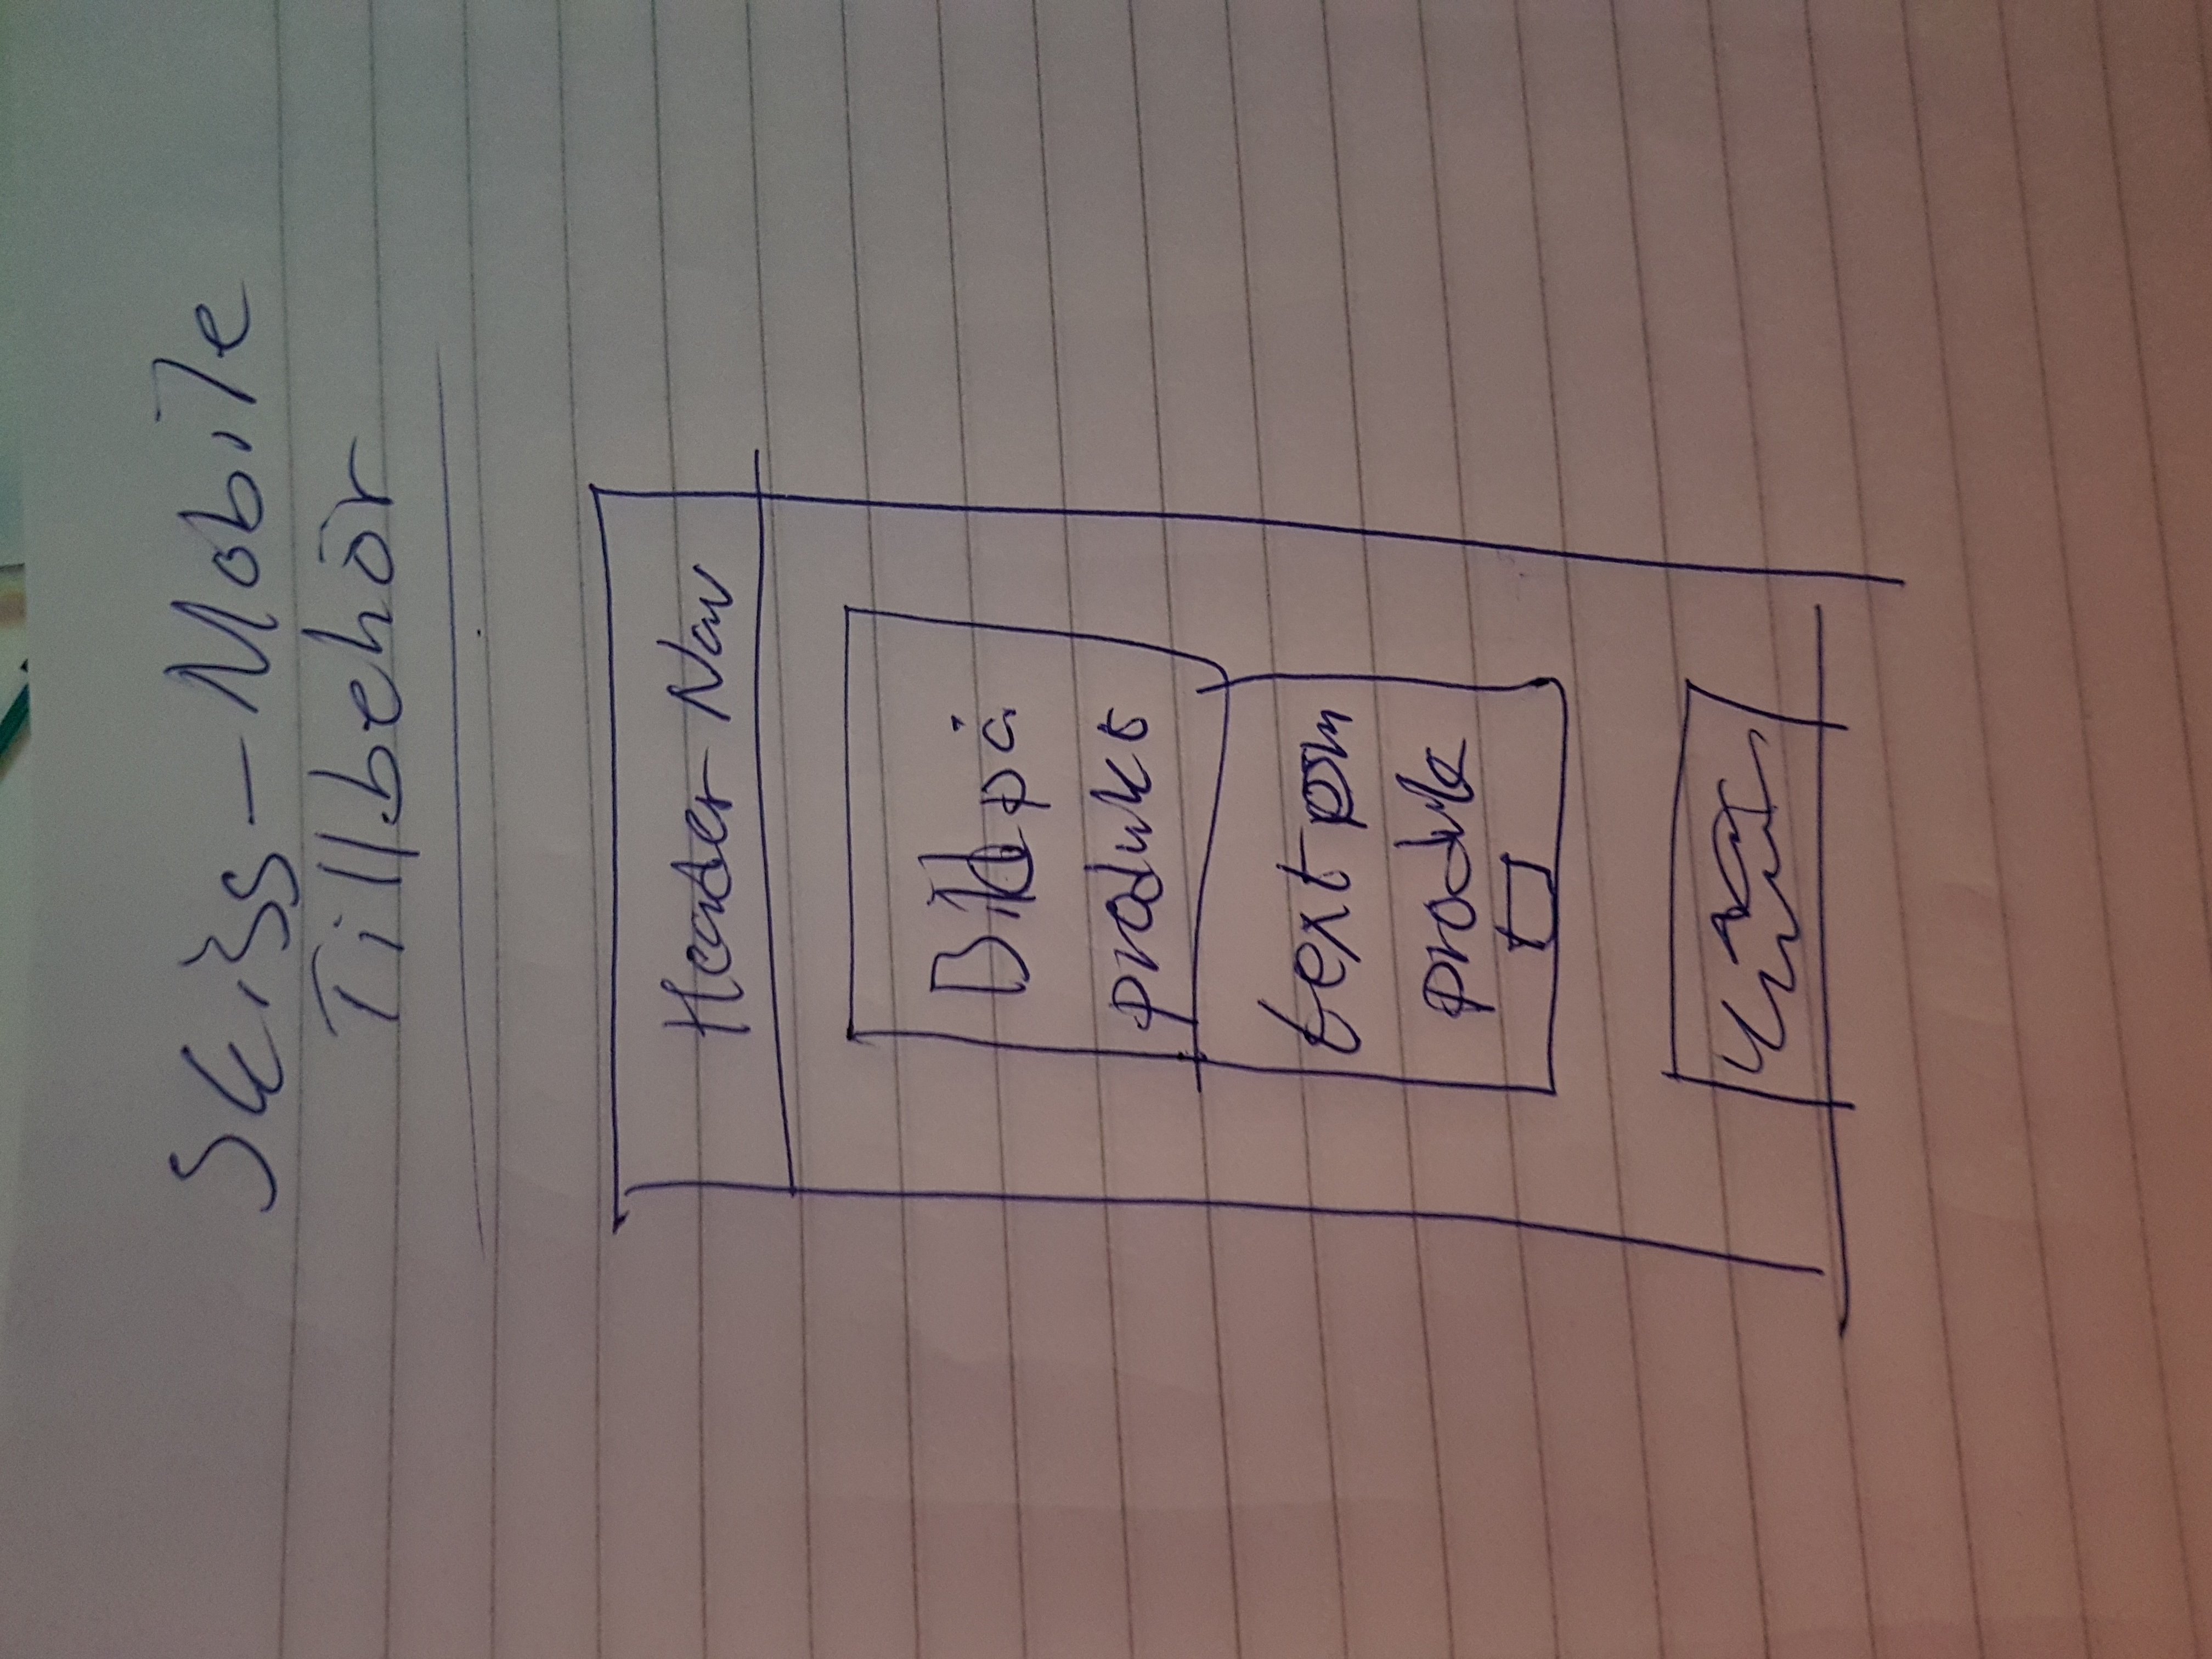 Skiss - Mobile
Tillbehör
Header Nav
Bild på
produkt
text om
produk